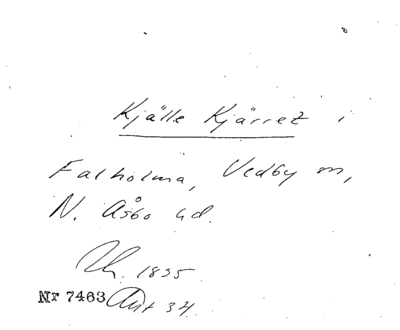 Kjälle Kjärret i
Falholma, Vedby sn,
N. Åsbo hd.
1835
Nr 7463 Ant 34.